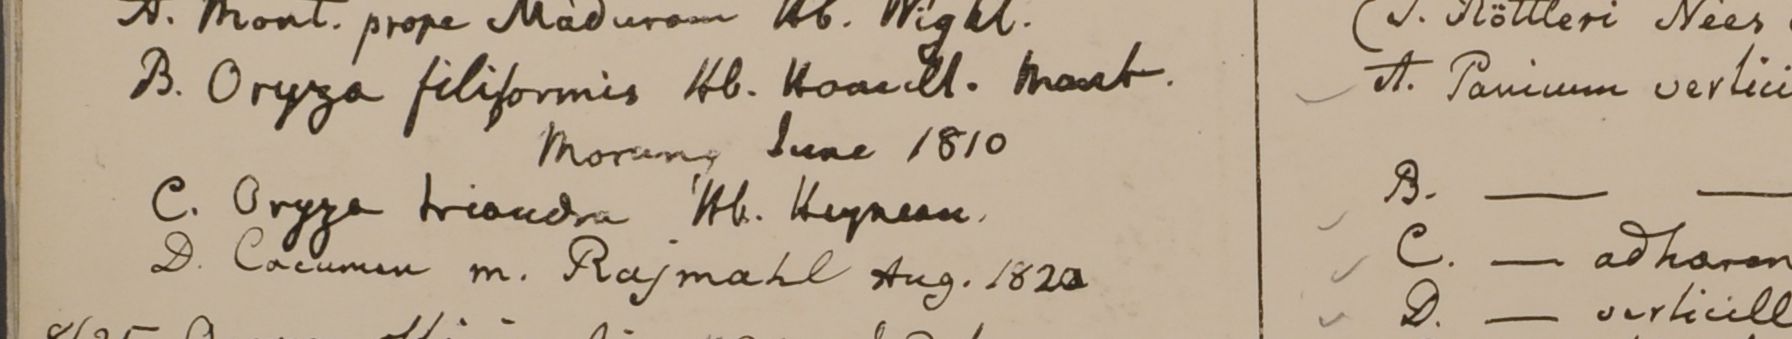 A. Mont. prope Maduram Hb. Wight.
B. Oryza filiformis Hb. Hamilt. Mont.
Morung June 1810
C. Oryza triandra Hb. Heynean.
D. Cacumen m. Rajmahl Aug. 1820
(S. Röttleri Nees
A. Panicum vertici
B. — —
C. — adhaeren
D. — verticill